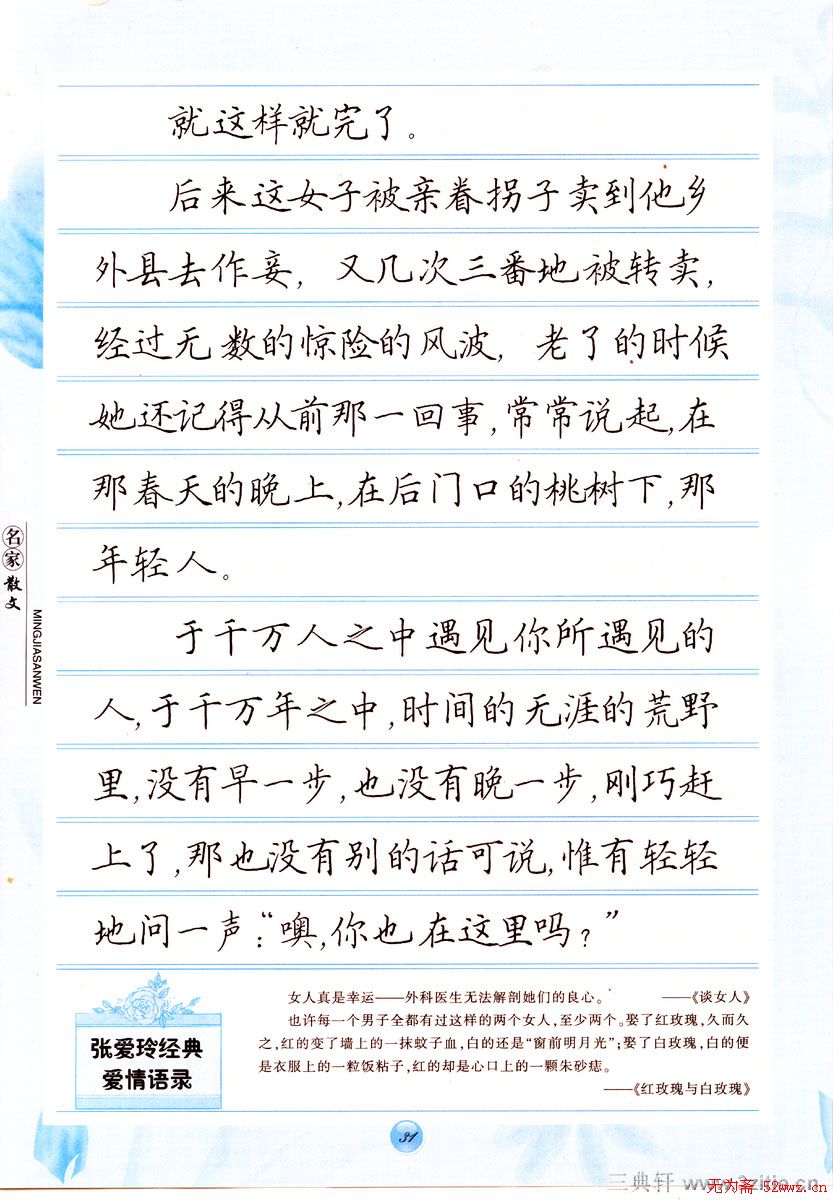 就这样就完了。
后来这女子被亲眷拐子卖到他乡
外县去作妾，又几次三番地被转卖，
经过无数的惊险的风波，老了的时候
她还记得从前那一回事，常常说起，在
那春天的晚上，在后门口的桃树下，那
年轻人。
于千万人之中遇见你所遇见的
人，于千万年之中，时间的无涯的荒野
里，没有早一步，也没有晚一步，刚巧赶
上了，那也没有别的话可说，惟有轻轻
地问一声：“噢，你也在这里吗？”
名家散文
MINGJIASANWEN
张爱玲经典
爱情语录
女人真是幸运——外科医生无法解剖她们的良心。 ——《谈女人》
也许每一个男子全都有过这样的两个女人，至少两个。娶了红玫瑰，久而久
之，红的变了墙上的一抹蚊子血，白的还是“窗前明月光”；娶了白玫瑰，白的便
是衣服上的一粒饭粘子，红的却是心口上的一颗朱砂痣。
——《红玫瑰与白玫瑰》
31
三典轩
无为斋·52wwz.cn